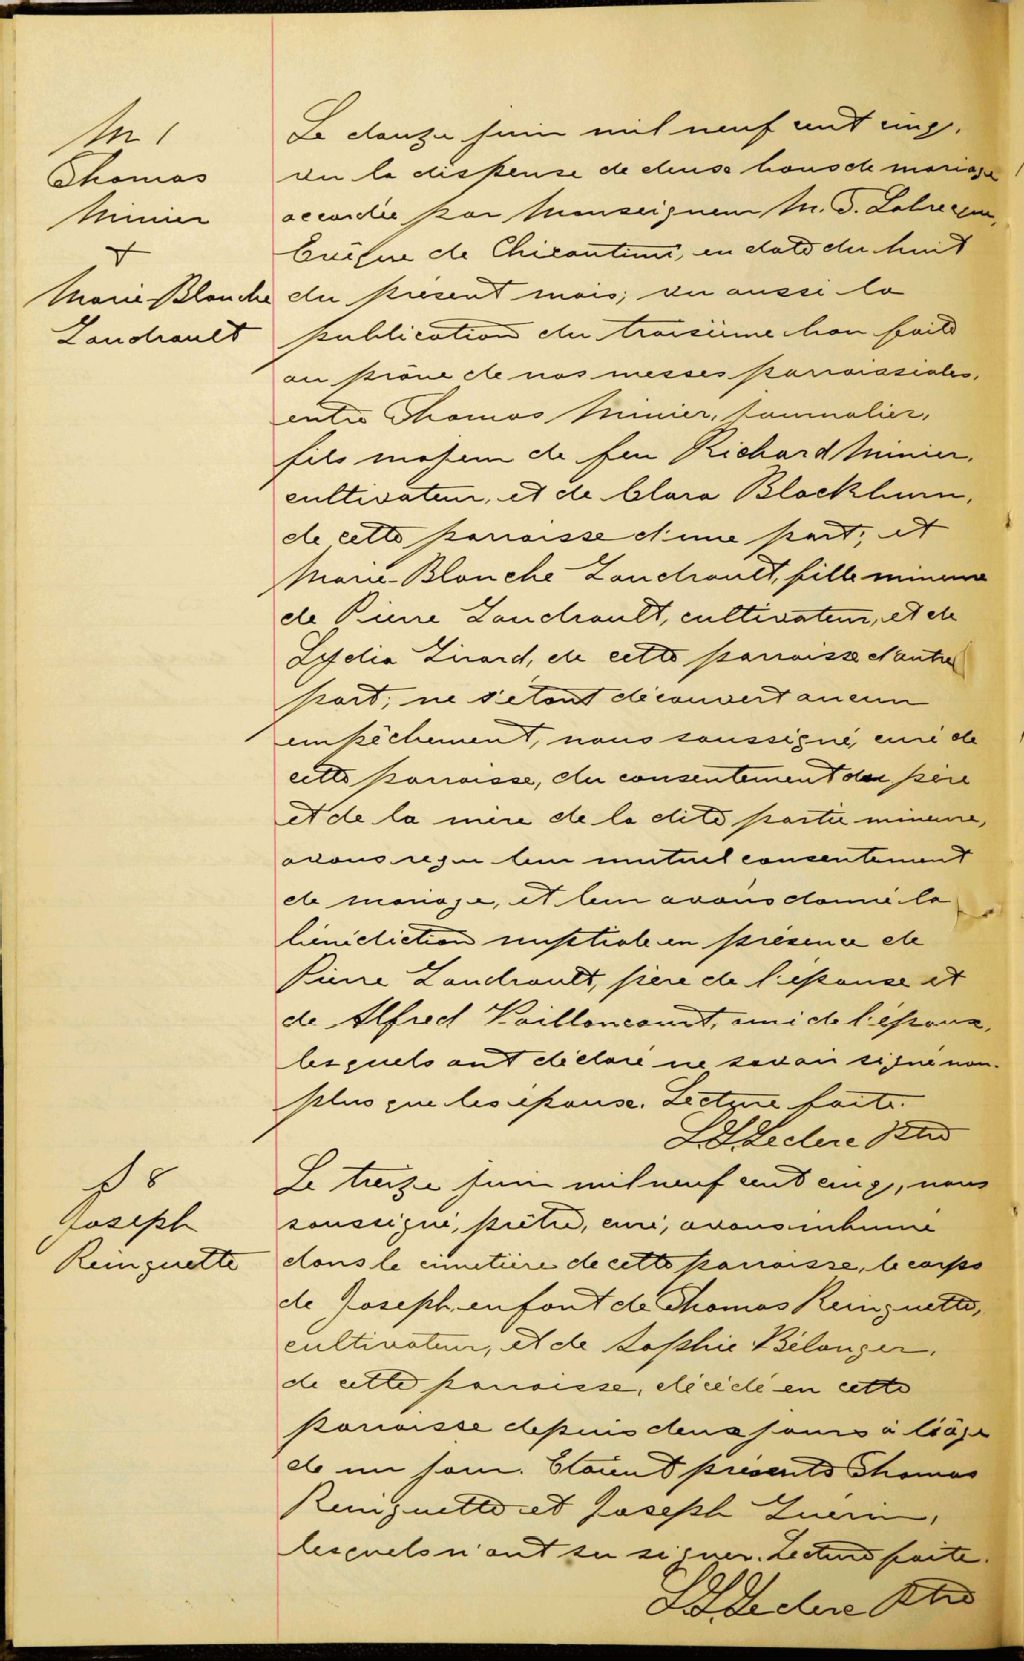 M 1
Thomas
Minier
+
Marie-Blanche
Gaudreault
Le douze juin mil neuf cent cinq,
vu la dispense de deux bans de mariage
accordée par Monseigneur M. T. Labrecque,
Evêque de Chicoutimi, en date du huit
du présent mois; vu aussi la
publication du troisième ban faite
au prône de nos messes paroissiales,
entre Thomas Minier, journalier,
fils majeur de feu Richard Minier,
cultivateur, et de Clara Blackburn,
de cette paroisse d'une part; et
Marie-Blanche Gaudrault, fille mineure
de Pierre Gaudrault, cultivateur, et de
Lydia Girard, de cette paroisse d'autre
part; ne s'étant découvert aucun
empêchement, nous soussigné, curé de
cette paroisse, du consentement du père
et de la mère de la dite partie mineure,
avons reçu leur mutuel consentement
de mariage, et leur avons donné la
bénédiction nuptiale en présence de
Pierre Gaudrault, père de l'épouse et
de Alfred Vaillancourt, ami de l'époux,
lesquels ont déclaré ne savoir signé non-
plus que les époux. Lecture faite.
Leclerc Ptre
S 8
Joseph
Reinguette
Le treize juin mil neuf cent cinq, nous
soussigné, prêtre, curé, avons inhumé
dans le cimetière de cette paroisse, le corps
de Joseph, enfant de Thomas Reinguette,
cultivateur, et de Sophie Bélanger,
de cette paroisse, décédé en cette
paroisse depuis deux jours à l'âge
de un jour. Etaient présents Thomas
Reinguette et Joseph Guérin,
lesquels n'ont su signer. Lecture faite.
Leclerc Ptre